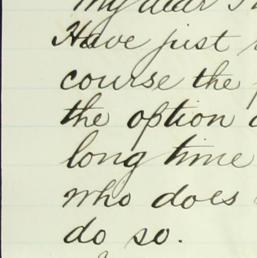 My dear
Have just
course the
the option
long time
who does
do so.